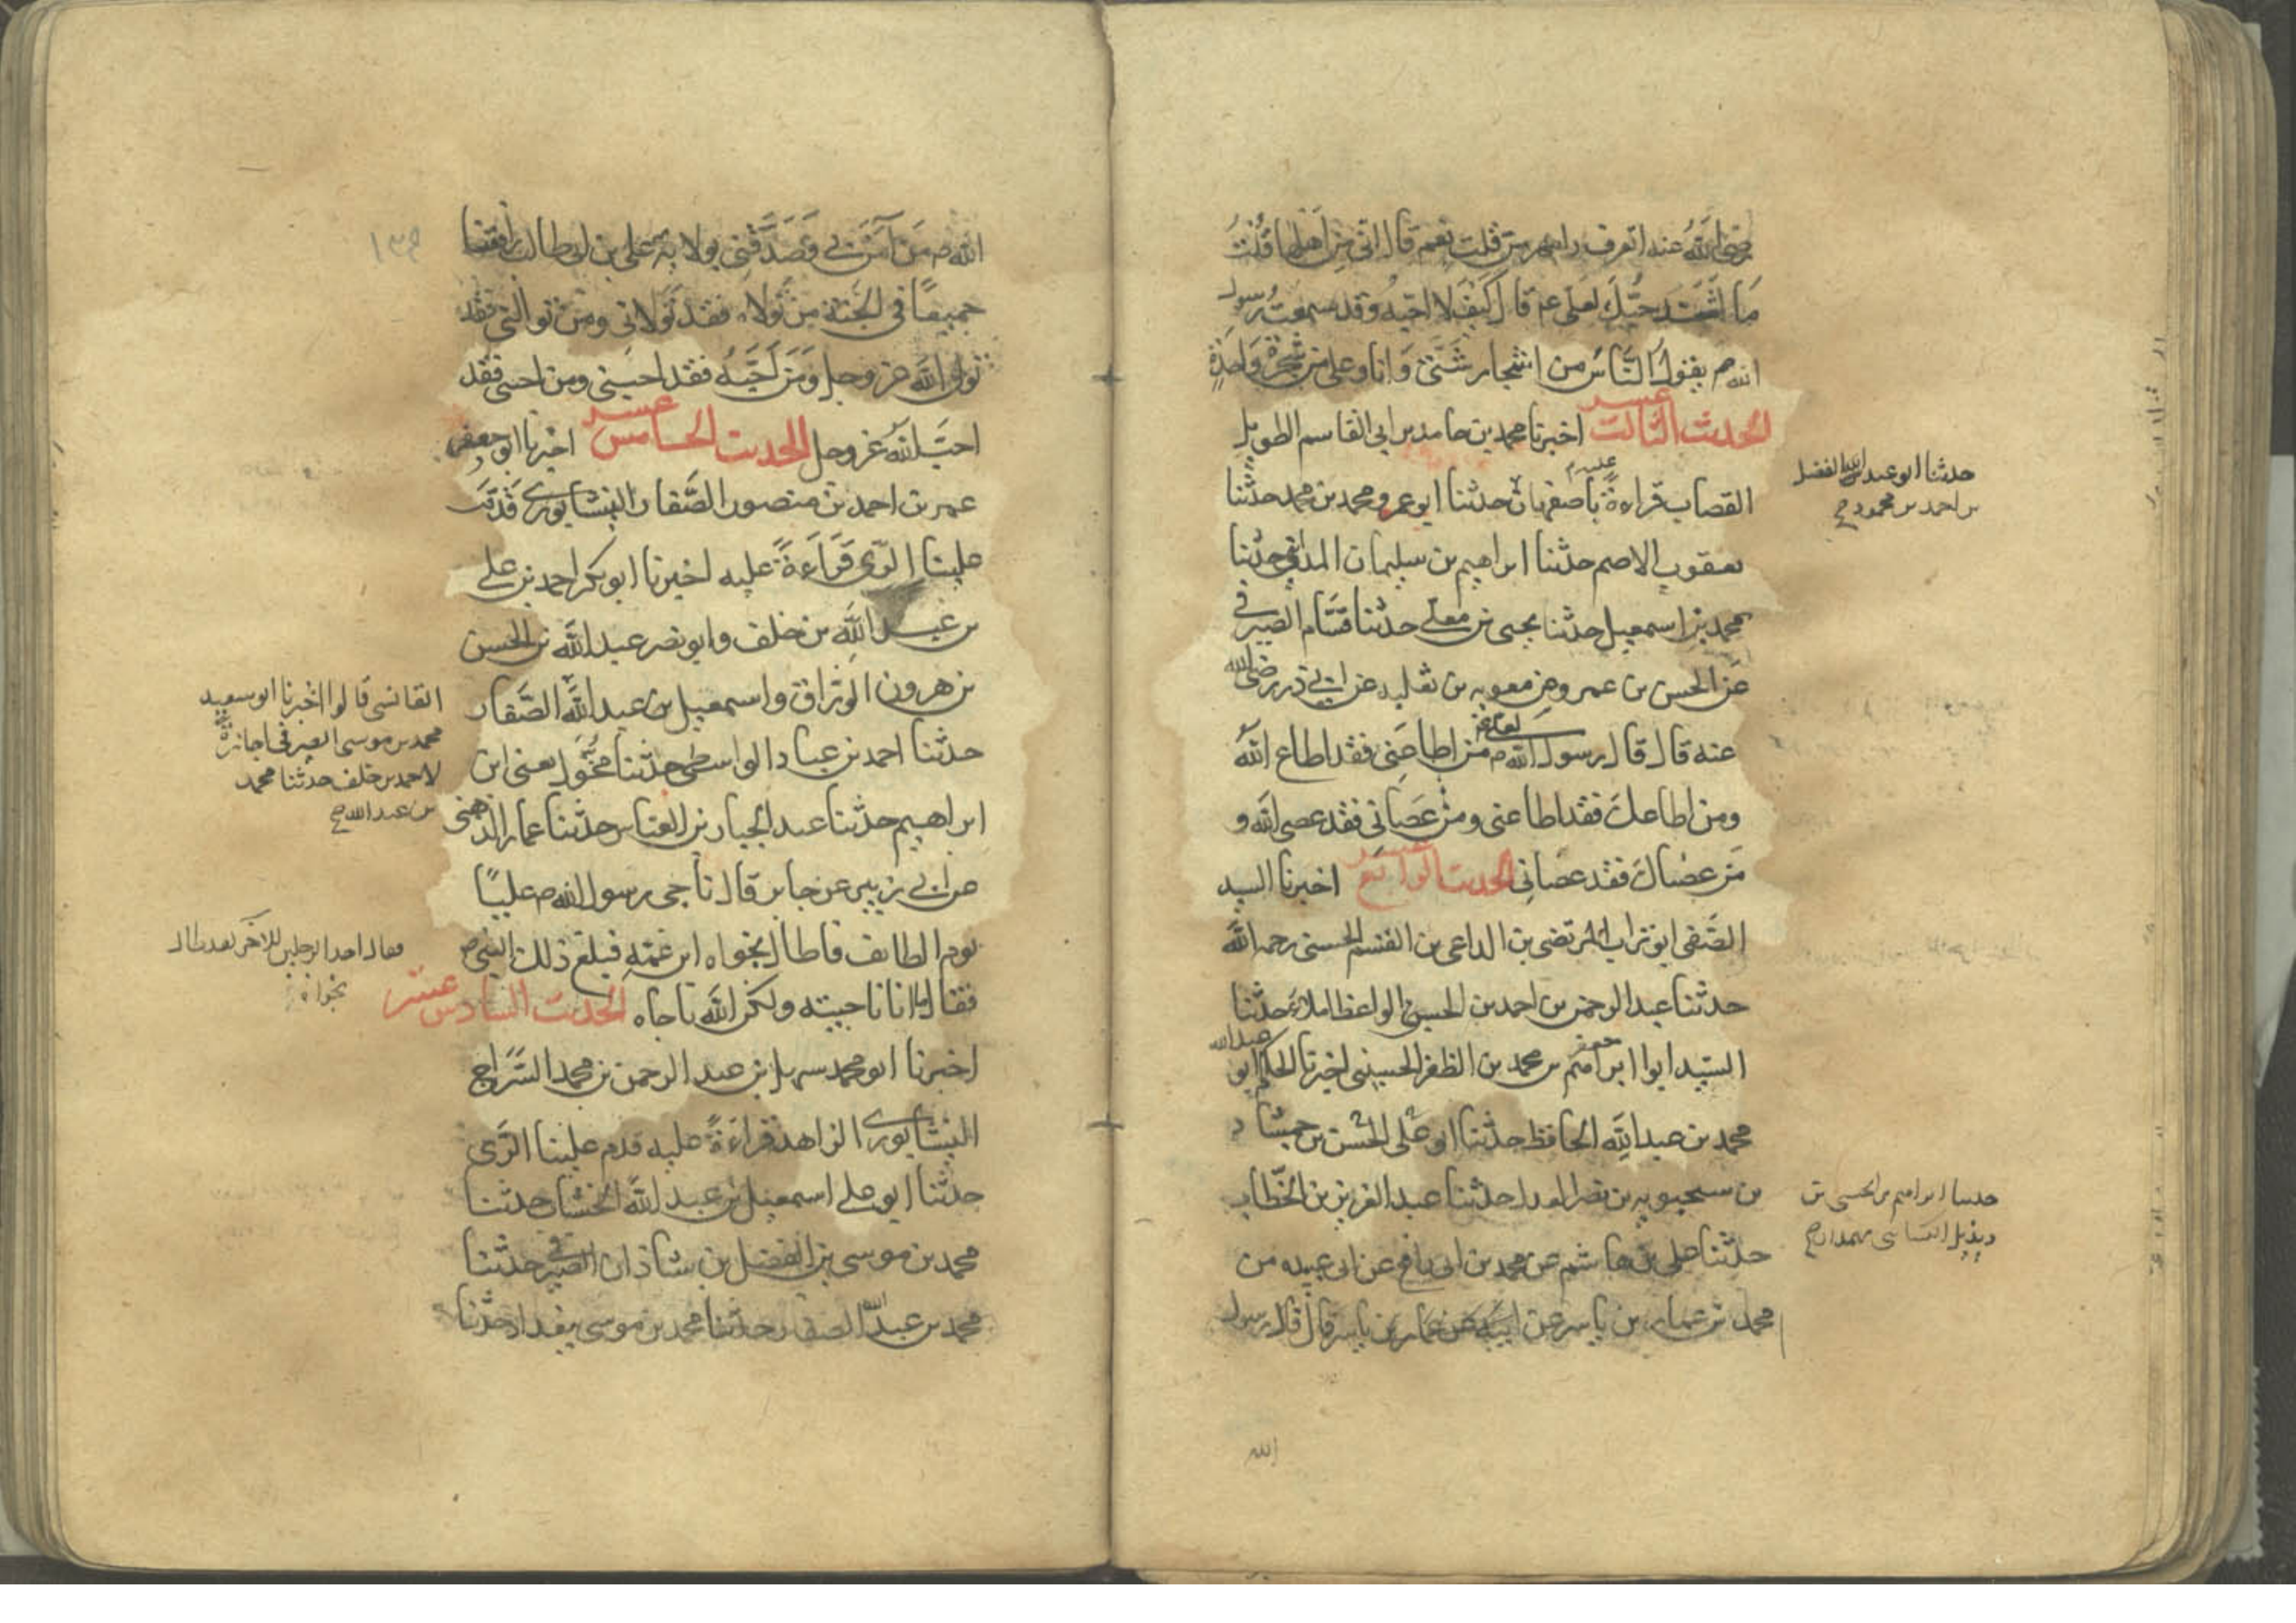 رضي الله عنه اتعرف رامهرمز قلت نعم قال اني من اهلها قلت
ما اشد حبك لعلي عم قال كيف لا احبه وقد سمعت رسول
الله م يقول الناس من اشجار شتى وانا وعلي من شجرة واحدة
الحديث الثالث عشر اخبرنا محمد بن حامد بن ابي القاسم الطويل
القصاب قراءة عليه باصفهان حدثنا ابو عمرو محمد بن محمد حدثنا
يعقوب الاصم حدثنا ابراهيم بن سليمان حدثنا
محمد بن اسمعيل حدثنا يحيى بن معلى حدثنا الصيرفي
عن الحسن بن عمرو عن معويه بن ثعلبه عن ابي ذر رضي الله
عنه قال قال رسول الله م لعلي عم من اطاعني فقد اطاع الله
ومن اطاعك فقد اطاعني ومن عصاني فقد عصى الله و
من عصاك فقد عصاني الحديث الرابع عشر اخبرنا السيد
الصفي ابو تراب المرتضى بن الداعي بن القسم الحسني رحمه الله
حدثنا عبد الرحمن بن احمد بن الحسين الواعظ املاء حدثنا
السيد ابو ابراهيم جعفر بن محمد بن الظفر الحسيني اخبرنا الحاكم ابو عبد الله
محمد بن عبد الله الحافظ حدثنا ابو علي الحسن بن حمشاد
بن سحبويه بن نصر حدثنا عبد العزيز بن الخطاب
حدثنا علي بن هاشم عن محمد بن ابي رافع عن ابي عبيده بن
محمد بن عمار بن ياسر عن ابيه عن عمار بن ياسر قال قال رسول
الله
حدثنا ابو عبد الله الفضل
بن احمد بن محمود ح
حدثنا ابراهيم بن الحسين بن
ديزيل بهمدان ح
١٣٩
الله م من آمن بي وصدقني بولاية علي بن ابي طالب
جميعا في الجنة من تولاه فقد تولاني ومن تولاني فقد
تولى الله عز وجل ومن احبه فقد احبني ومن احبني فقد
احب الله عز وجل الحديث الخامس عشر اخبرنا ابو جعفر
عمر بن احمد بن منصور الصفار النيشابوري قدم
علينا الري قراءة عليه اخبرنا ابو بكر احمد بن علي
بن عبد الله بن خلف وابو نصر عبد الله بن الحسين
بن هرون الوراق واسمعيل بن عبد الله الصفار
حدثنا احمد بن عباد الواسطي حدثنا مخول يعني ابن
ابراهيم حدثنا عبد الجبار بن العباس حدثنا عمار الدهني
عن ابي زبير عن جابر قال ناجى رسول الله م عليا
يوم الطايف فاطال نجواه ابن عمه فبلغ ذلك النبي م
فقال اما انا ناجيته ولكن الله ناجاه الحديث السادس عشر
اخبرنا ابو محمد سهل بن عبد الرحمن بن محمد السراج
النيشابوري الزاهد قراءة عليه قدم علينا الري
حدثنا ابو علي اسمعيل بن عبد الله الخشاب حدثنا
محمد بن موسى بن الفضل بن شاذان الصيرفي حدثنا
محمد بن عبد الله الصفار حدثنا محمد بن موسى ببغداد حدثنا
قالوا اخبرنا ابو سعيد
محمد بن موسى الصيرفي اجازة
لاحمد بن خلف حدثنا محمد
بن عبد الله ح
فقال احد الرجلين للآخر لقد طال
نجواه